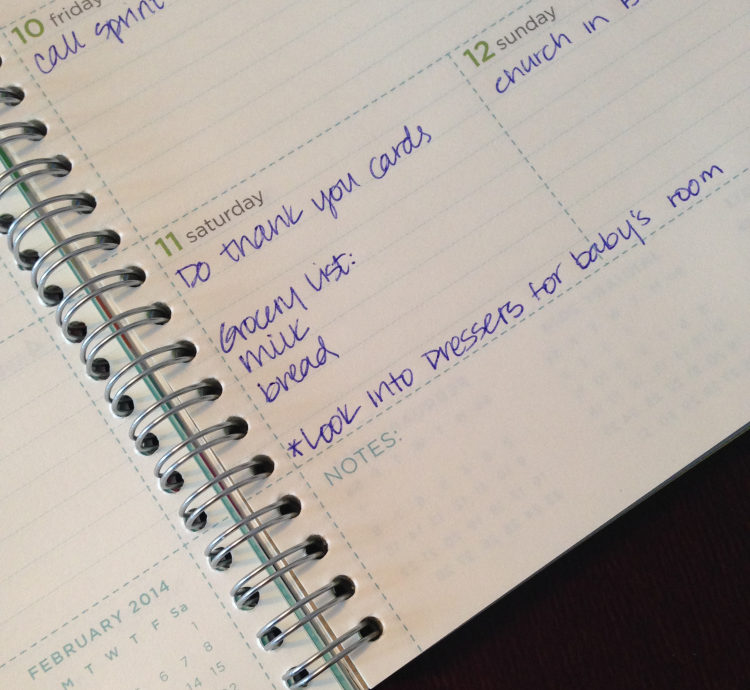 10 friday
call sprint
12 sunday
church in
11 saturday
Do thank you cards
Grocery List:
milk
bread
*Look into Dressers for baby's room
NOTES:
FEBRUARY 2014
M T W T F Sa
1
6 7 8
14 15